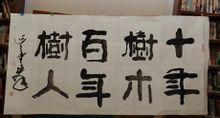 十年
樹木
百年
樹人